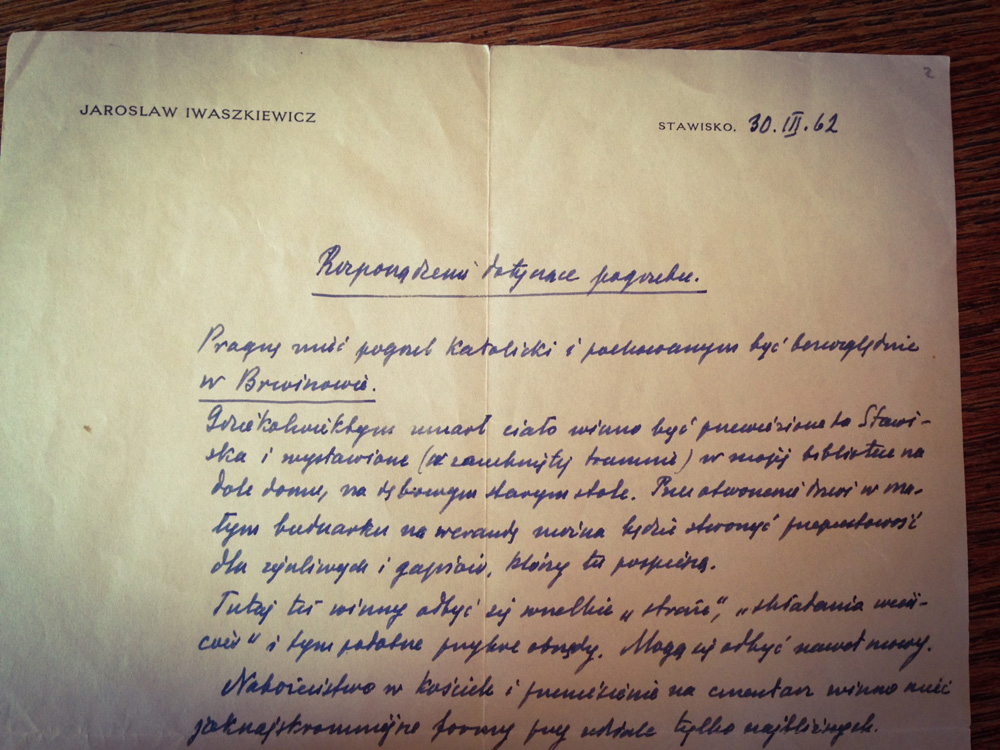 2
JAROSLAW IWASZKIEWICZ
STAWISKO. 30.III.62
Rozporządzenia dotyczące pogrzebu.
Pragnę mieć pogrzeb katolicki i pochowanym być bezwzględnie
w Brwinowie.
Gdziekolwiekbym umarł ciało winno być przewiezione do Stawi-
ska i wystawione (w zamkniętej trumnie) w mojej bibliotece na
dole domu, na dębowym starym stole. Przez otworzenie drzwi w ma-
łym buduarku na werandę można będzie stworzyć przepustowość
dla życzliwych i gapiów, którzy tu pospieszą.
Tutaj też winny odbyć się wszelkie „straże", „składania wień-
ców" i tym podobne przykre obrzędy. Mogą się odbyć nawet mowy.
Nabożeństwo w kościele i przeniesienie na cmentarz winno mieć
jaknajskromniejsze formy przy udziale tylko najbliższych.